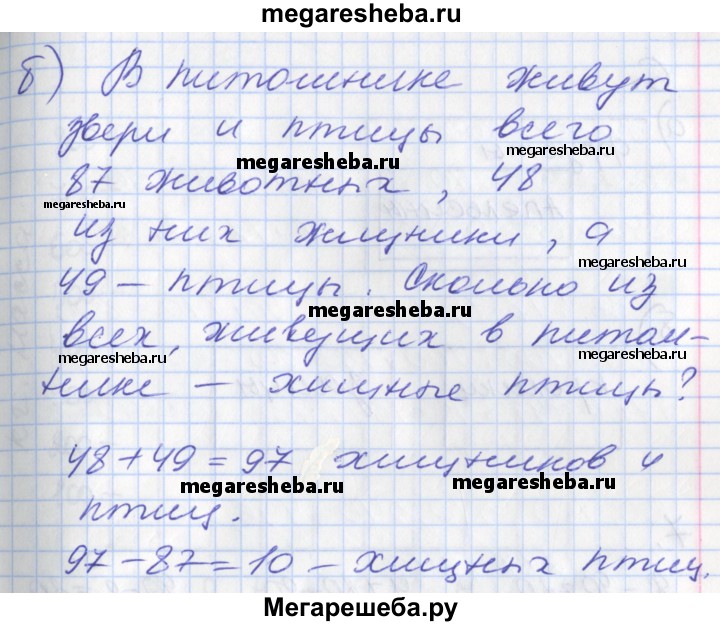 megaresheba.ru
б) В питомнике живут
звери и птицы всего
megaresheba.ru
megaresheba.ru
87 животных, 48
megaresheba.ru
из них хищники, а
megaresheba.ru
49 – птицы. Сколько из
megaresheba.ru
всех, живущих в питом-
megaresheba.ru
megaresheba.ru
нике – хищные птицы?
48 + 49 = 97 хищников и
megaresheba.ru
megaresheba.ru
птиц.
97 – 87 = 10 – хищных птиц.
Мегарешеба.ру